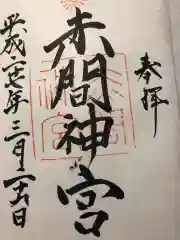 奉拝
赤間神宮
平成二七年三月二十六日